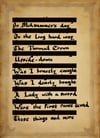 In Midsummer's day
In the long hard way
The Thorned Crown
Upside-down
Was I bravely sought
Was I dearly bought
A Lady with a sword
Were the first runes scored
These things and more